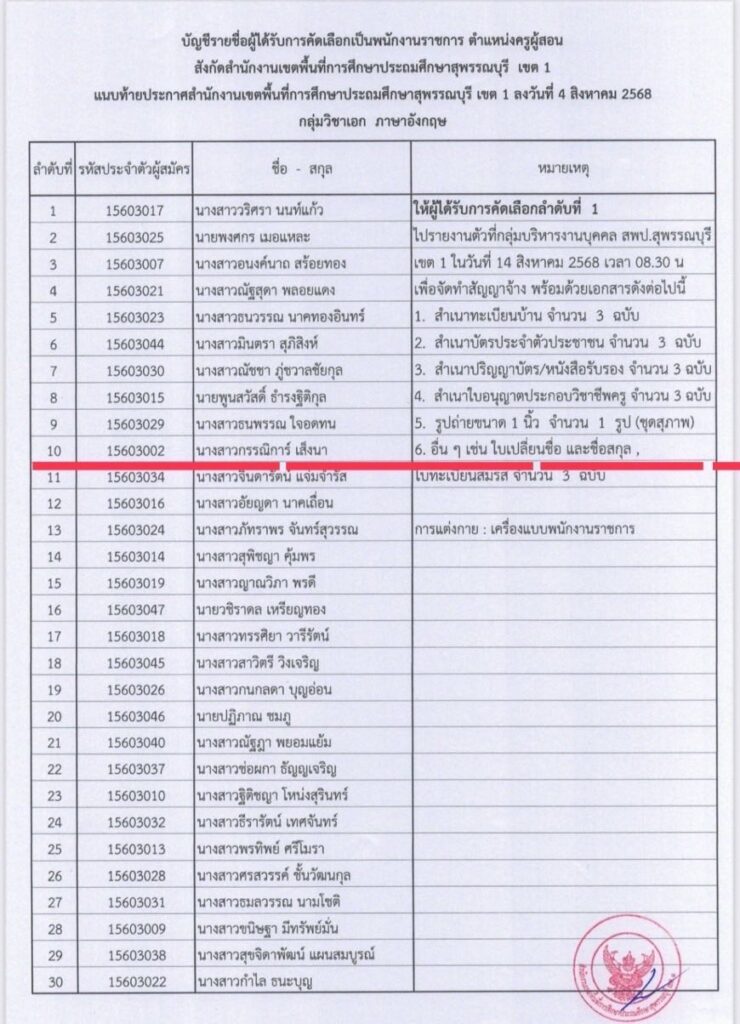 บัญชีรายชื่อผู้ได้รับการคัดเลือกเป็นพนักงานราชการ ตำแหน่งครูผู้สอน
สังกัดสำนักงานเขตพื้นที่การศึกษาประถมศึกษาสุพรรณบุรี เขต 1
แนบท้ายประกาศสำนักงานเขตพื้นที่การศึกษาประถมศึกษาสุพรรณบุรี เขต 1 ลงวันที่ 4 สิงหาคม 2568
กลุ่มวิชาเอก ภาษาอังกฤษ
ลำดับที่ รหัสประจำตัวผู้สมัคร ชื่อ - สกุล หมายเหตุ
1 15603017 นางสาววริศรา นนท์แก้ว ให้ผู้ได้รับการคัดเลือกลำดับที่ 1
2 15603025 นายพงศกร เมอแหละ ไปรายงานตัวที่กลุ่มบริหารงานบุคคล สพป.สุพรรณบุรี
3 15603007 นางสาวอนงค์นาถ สร้อยทอง เขต 1 ในวันที่ 14 สิงหาคม 2568 เวลา 08.30 น
4 15603021 นางสาวณัฐสุดา พลอยแดง เพื่อจัดทำสัญญาจ้าง พร้อมด้วยเอกสารดังต่อไปนี้
5 15603023 นางสาวธนวรรณ นาคทองอินทร์ 1. สำเนาทะเบียนบ้าน จำนวน 3 ฉบับ
6 15603044 นางสาวมินตรา สุภิสิงห์ 2. สำเนาบัตรประจำตัวประชาชน จำนวน 3 ฉบับ
7 15603030 นางสาวณัชชา ภู่ขวาลชัยกุล 3. สำเนาปริญญาบัตร/หนังสือรับรอง จำนวน 3 ฉบับ
8 15603015 นายพูนสวัสดิ์ ธำรงฐิติกุล 4. สำเนาใบอนุญาตประกอบวิชาชีพครู จำนวน 3 ฉบับ
9 15603029 นางสาวธนพรรณ ใจอดทน 5. รูปถ่ายขนาด 1 นิ้ว จำนวน 1 รูป (ชุดสุภาพ)
10 15603002 นางสาวกรรณิการ์ เส็งนา 6. อื่น ๆ เช่น ใบเปลี่ยนชื่อ และชื่อสกุล ,
11 15603034 นางสาวจินดารัตน์ แจ่มจำรัส ใบทะเบียนสมรส จำนวน 3 ฉบับ
12 15603016 นางสาวอัยญดา นาคเถื่อน
13 15603024 นางสาวภัทราพร จันทร์สุวรรณ การแต่งกาย : เครื่องแบบพนักงานราชการ
14 15603014 นางสาวสุพิชญา คุ้มพร
15 15603019 นางสาวญาณวิภา พรดี
16 15603047 นายวชิราดล เหรียญทอง
17 15603018 นางสาวทรรศิยา วารีรัตน์
18 15603045 นางสาวสาวิตรี วิงเจริญ
19 15603026 นางสาวกนกลดา บุญอ่อน
20 15603046 นายปฏิภาณ ชมภู
21 15603040 นางสาวณัฐฎา พยอมแย้ม
22 15603037 นางสาวช่อผกา ธัญญเจริญ
23 15603010 นางสาวฐิติชญา โหน่งสุรินทร์
24 15603032 นางสาวธีรารัตน์ เทศจันทร์
25 15603013 นางสาวพรทิพย์ ศรีโมรา
26 15603028 นางสาวศรสวรรค์ ชั้นวัฒนกุล
27 15603031 นางสาวธมลวรรณ นามโชติ
28 15603009 นางสาวขนิษฐา มีทรัพย์มั่น
29 15603038 นางสาวสุขจิดาพัฒน์ แผนสมบูรณ์
30 15603022 นางสาวกำไล ธนะบุญ